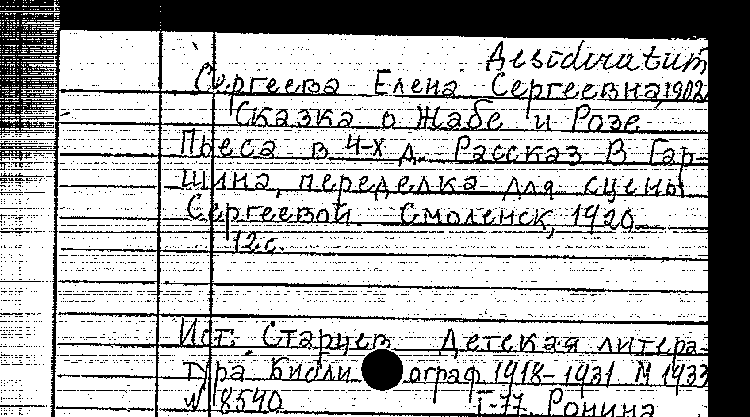 Desideratum
Сергеева Елена Сергеевна, 1902
Сказка о Жабе и Розе
Пьеса в 4-х д. Рассказ В Гар-
шина, переделка для сцены
Сергеевой Смоленск, 1920
12 с.
Ист. Старцев Детская литера-
тура Библи ограф. 1918-1931 М 1933
№ 8540 Т-77 Ронина